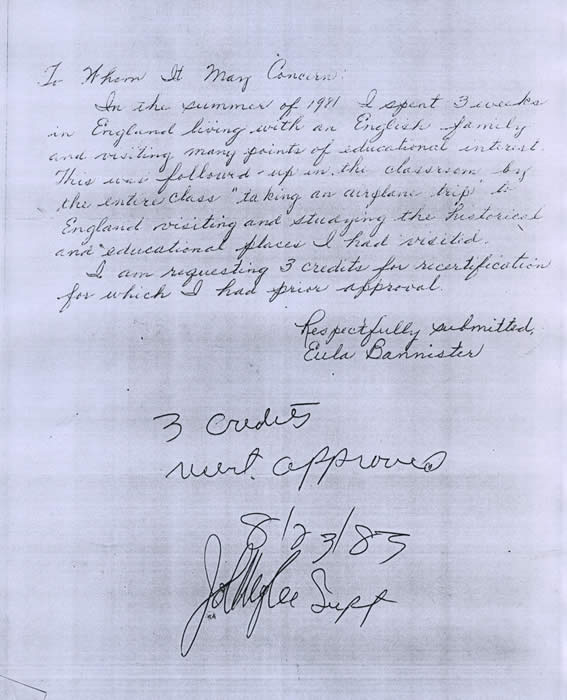 To Whom It May Concern:
In the summer of 1981 I spent 3 weeks
in England living with an English family
and visiting many points of educational interest.
This was followed-up in the classroom by
the entire class "taking an airplane trip" to
England visiting and studying the historical
and educational places I had visited.
I am requesting 3 credits for recertification
for which I had prior approval.
Respectfully submitted,
Eula Bannister
3 credits
approved
8/23/83
Supt